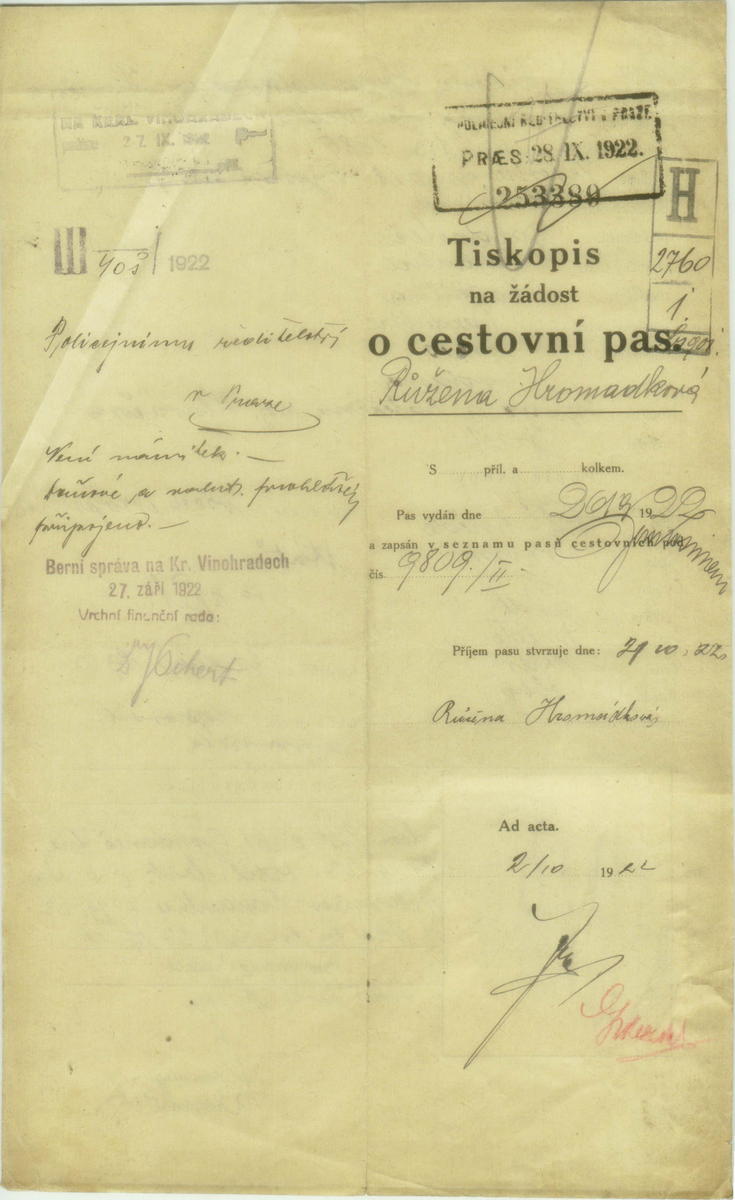 NA KRÁL. VINOHRADECH
27. IX. 1922
III 1922
Policejnímu ředitelství
v Praze
Není námitek. —
připojeno. —
Berní správa na Kr. Vinohradech
27. září 1922
Vrchní finanční rada:
POLICEJNÍ ŘEDITELSTVÍ V PRAZE.
PRÆS. 28. IX. 1922.
253389
H
2760
1.
Tiskopis
na žádost
o cestovní pas.
Růžena Hromadková
S příl. a kolkem.
Pas vydán dne 1922
a zapsán v seznamu pasů cestovních pod
čís. 9809./II.-
Příjem pasu stvrzuje dne:
Růžena Hromádková
Ad acta.
2/10 1922